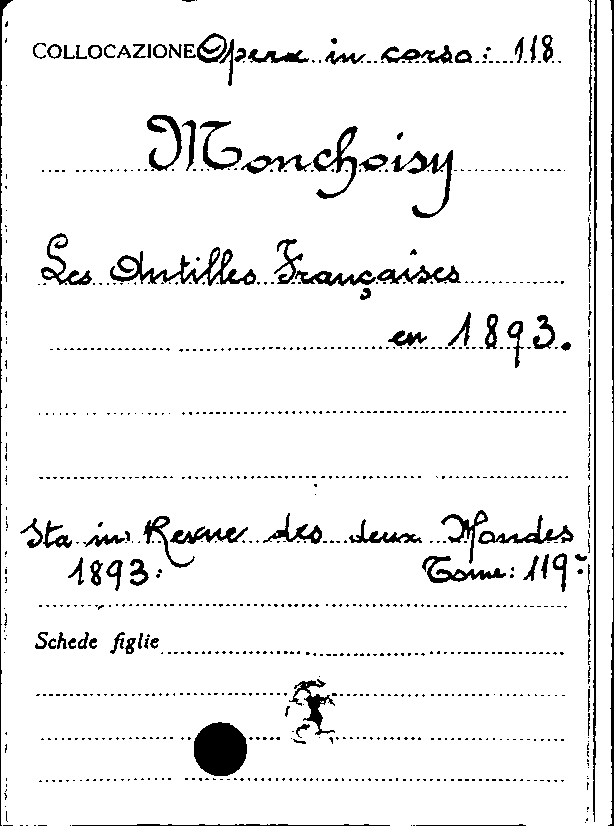 COLLOCAZIONE Opera in corso: 118
Monchoisy
Les Antilles Françaises
en 1893.
Sta in Revue des deux Mondes
1893: Tome: 119:
Schede figlie